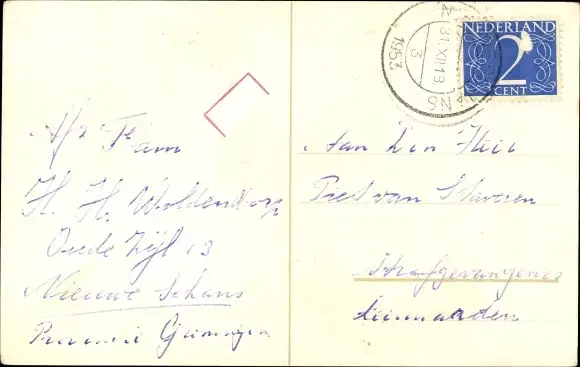 Afz Fam
H. H. Woldendorp
Oude Zijl 13
Nieuwe Schans
Provincie Groningen
NEDERLAND
2
CENT
31.XII.13
3
1953
NS
Aan Den Heer
Piet van Stavoren
Strafgevangenes
Leeuwarden